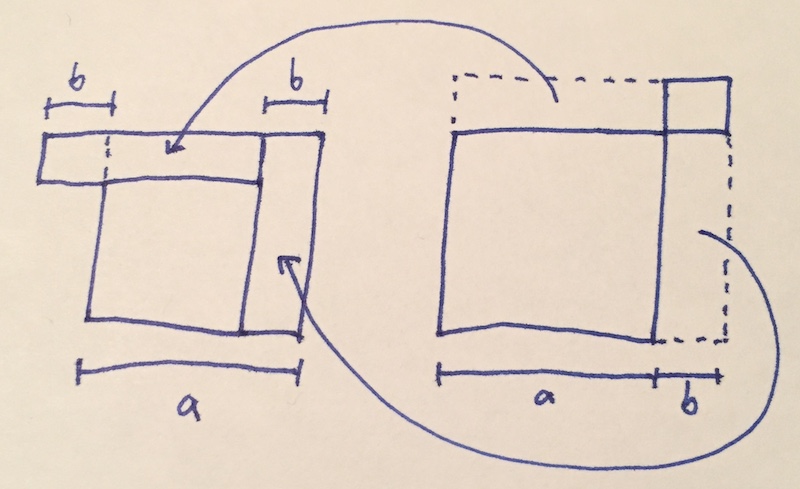 b b
a
a b